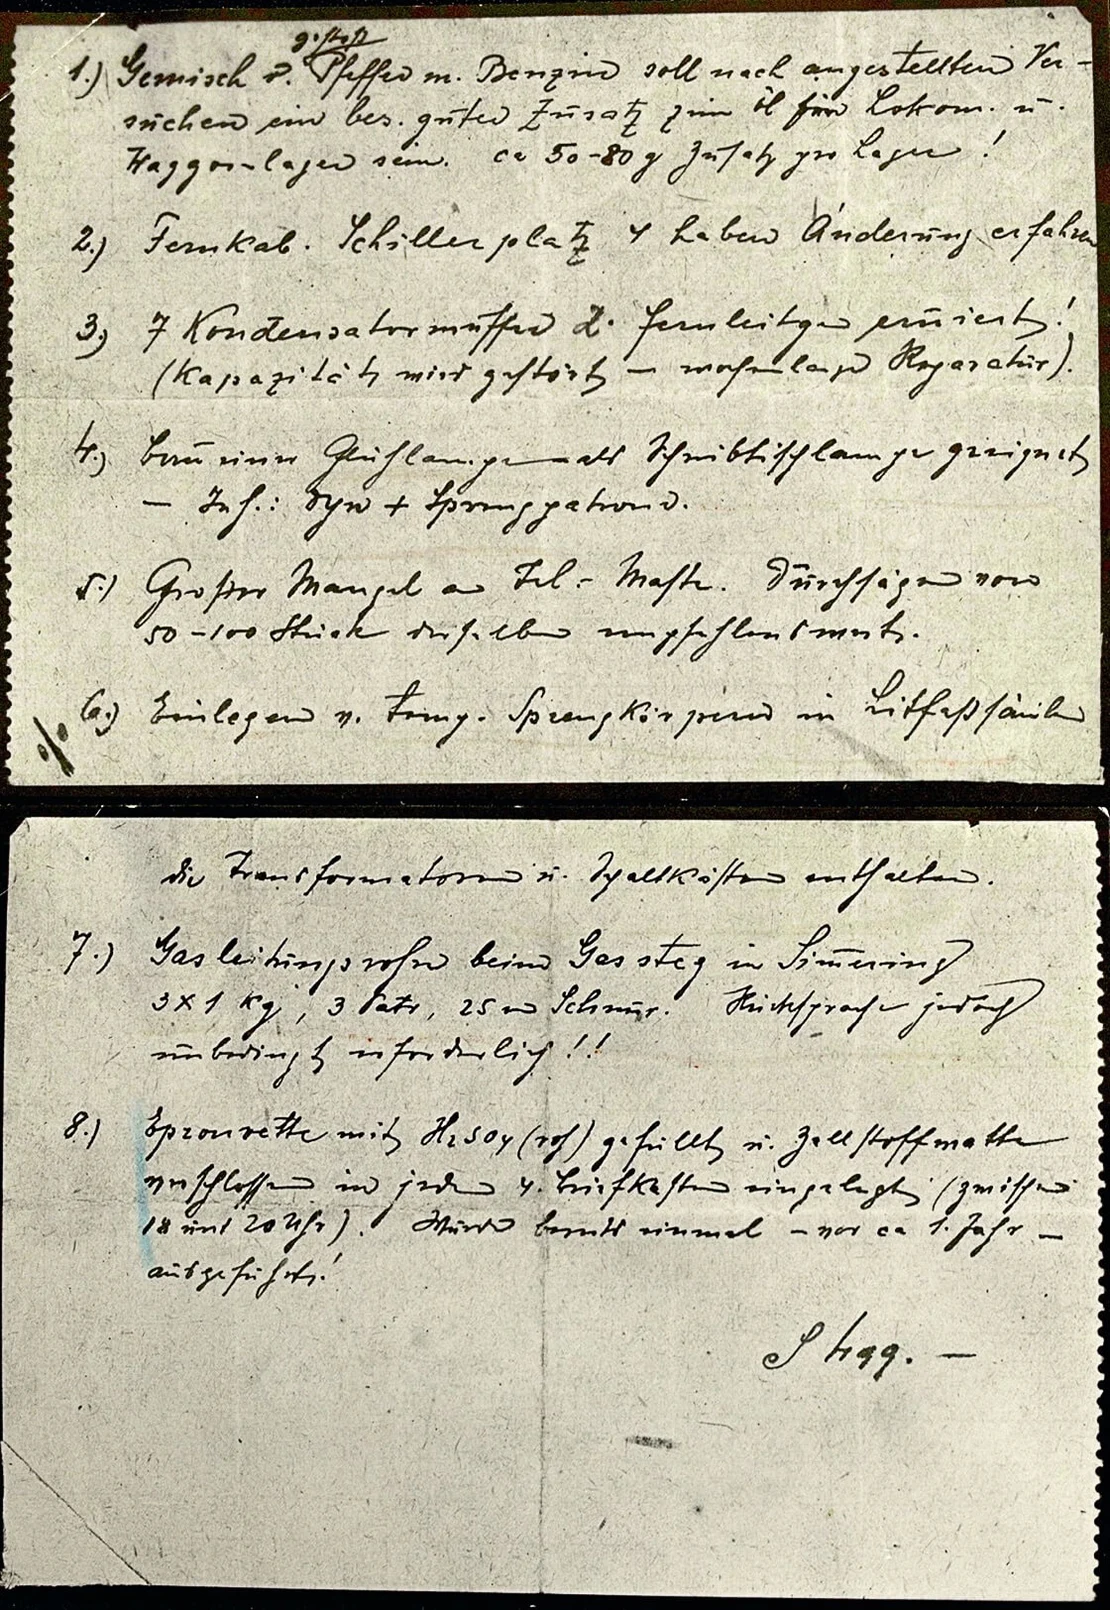 gestoß.
1.) Gemisch v. Pfeffer m. Benzin soll nach angestellten Ver-
suchen ein bes. guter Zusatz zum Öl für Lokom. u.
Waggon-lager sein. ca 50-80 g Zusatz pro Lager!
2.) Fernkab. Schillerplatz 4 haben Änderung erfahren
3.) 7 Kondensatormuffen d. Fernleitgen eruiert!
(Kapazität wird gestört – wochenlange Reparatur).
4.) Bau einer Glühlampe – als Schreibtischlampe geeignet
– Inh.: Dyn + Sprengpatrone.
5.) Großer Mangel an Tel.- Maste. Durchsägen von
50-100 Stück derselben empfehlenswert.
6.) Einlegen v. Temp. Sprengkörpern in Litfaßsäulen
%
die Transformatoren u. Schaltkästen enthalten.
7.) Gasleitungsrohre beim Gassteg in Simmering
3x1 kg, 3 Patr, 25 m Schnur. Rücksprache jedoch
unbedingt erforderlich!!
8.) Eprouvette mit H2SO4 (roh) gefüllt u. Zellstoffwatte
verschlossen in jeden 4. Briefkasten eingelegt (zwischen
18 und 20 Uhr). Wurde bereits einmal – vor ca 1. Jahr –
ausgeführt!